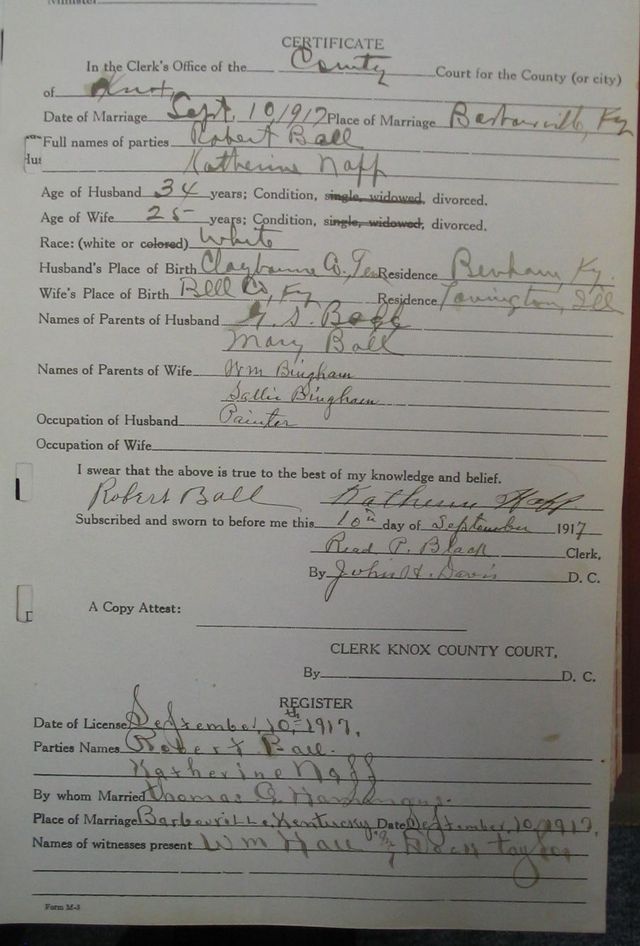 Minister
CERTIFICATE
In the Clerk's Office of the County Court for the County (or city)
of Knox
Date of Marriage Sept. 10, 1917 Place of Marriage Barbourville, Ky
Full names of parties Robert Ball
Hus
Katherine Naff
Age of Husband 34 years; Condition, single, widowed, divorced.
Age of Wife 25 years; Condition, single, widowed, divorced.
Race: (white or colored) White
Husband's Place of Birth Clayborne Co., Ten Residence Benham Ky.
Wife's Place of Birth Bell Co, Ky Residence Ill
Names of Parents of Husband Ball
Mary Ball
Names of Parents of Wife Wm Bingham
Sallie Bingham
Occupation of Husband Painter
Occupation of Wife
I swear that the above is true to the best of my knowledge and belief.
Robert Ball Katherine Naff
Subscribed and sworn to before me this 10th day of September 1917
Read P. Black Clerk,
By John H. Davis D. C.
A Copy Attest:
CLERK KNOX COUNTY COURT,
By D. C.
REGISTER
Date of License September 10th 1917.
Parties Names Robert Ball.
Katherine Naff
By whom Married Thomas
Place of Marriage Barbourville Kentucky Date September, 10, 1917.
Names of witnesses present Wm Hall Taylor
Form M-3